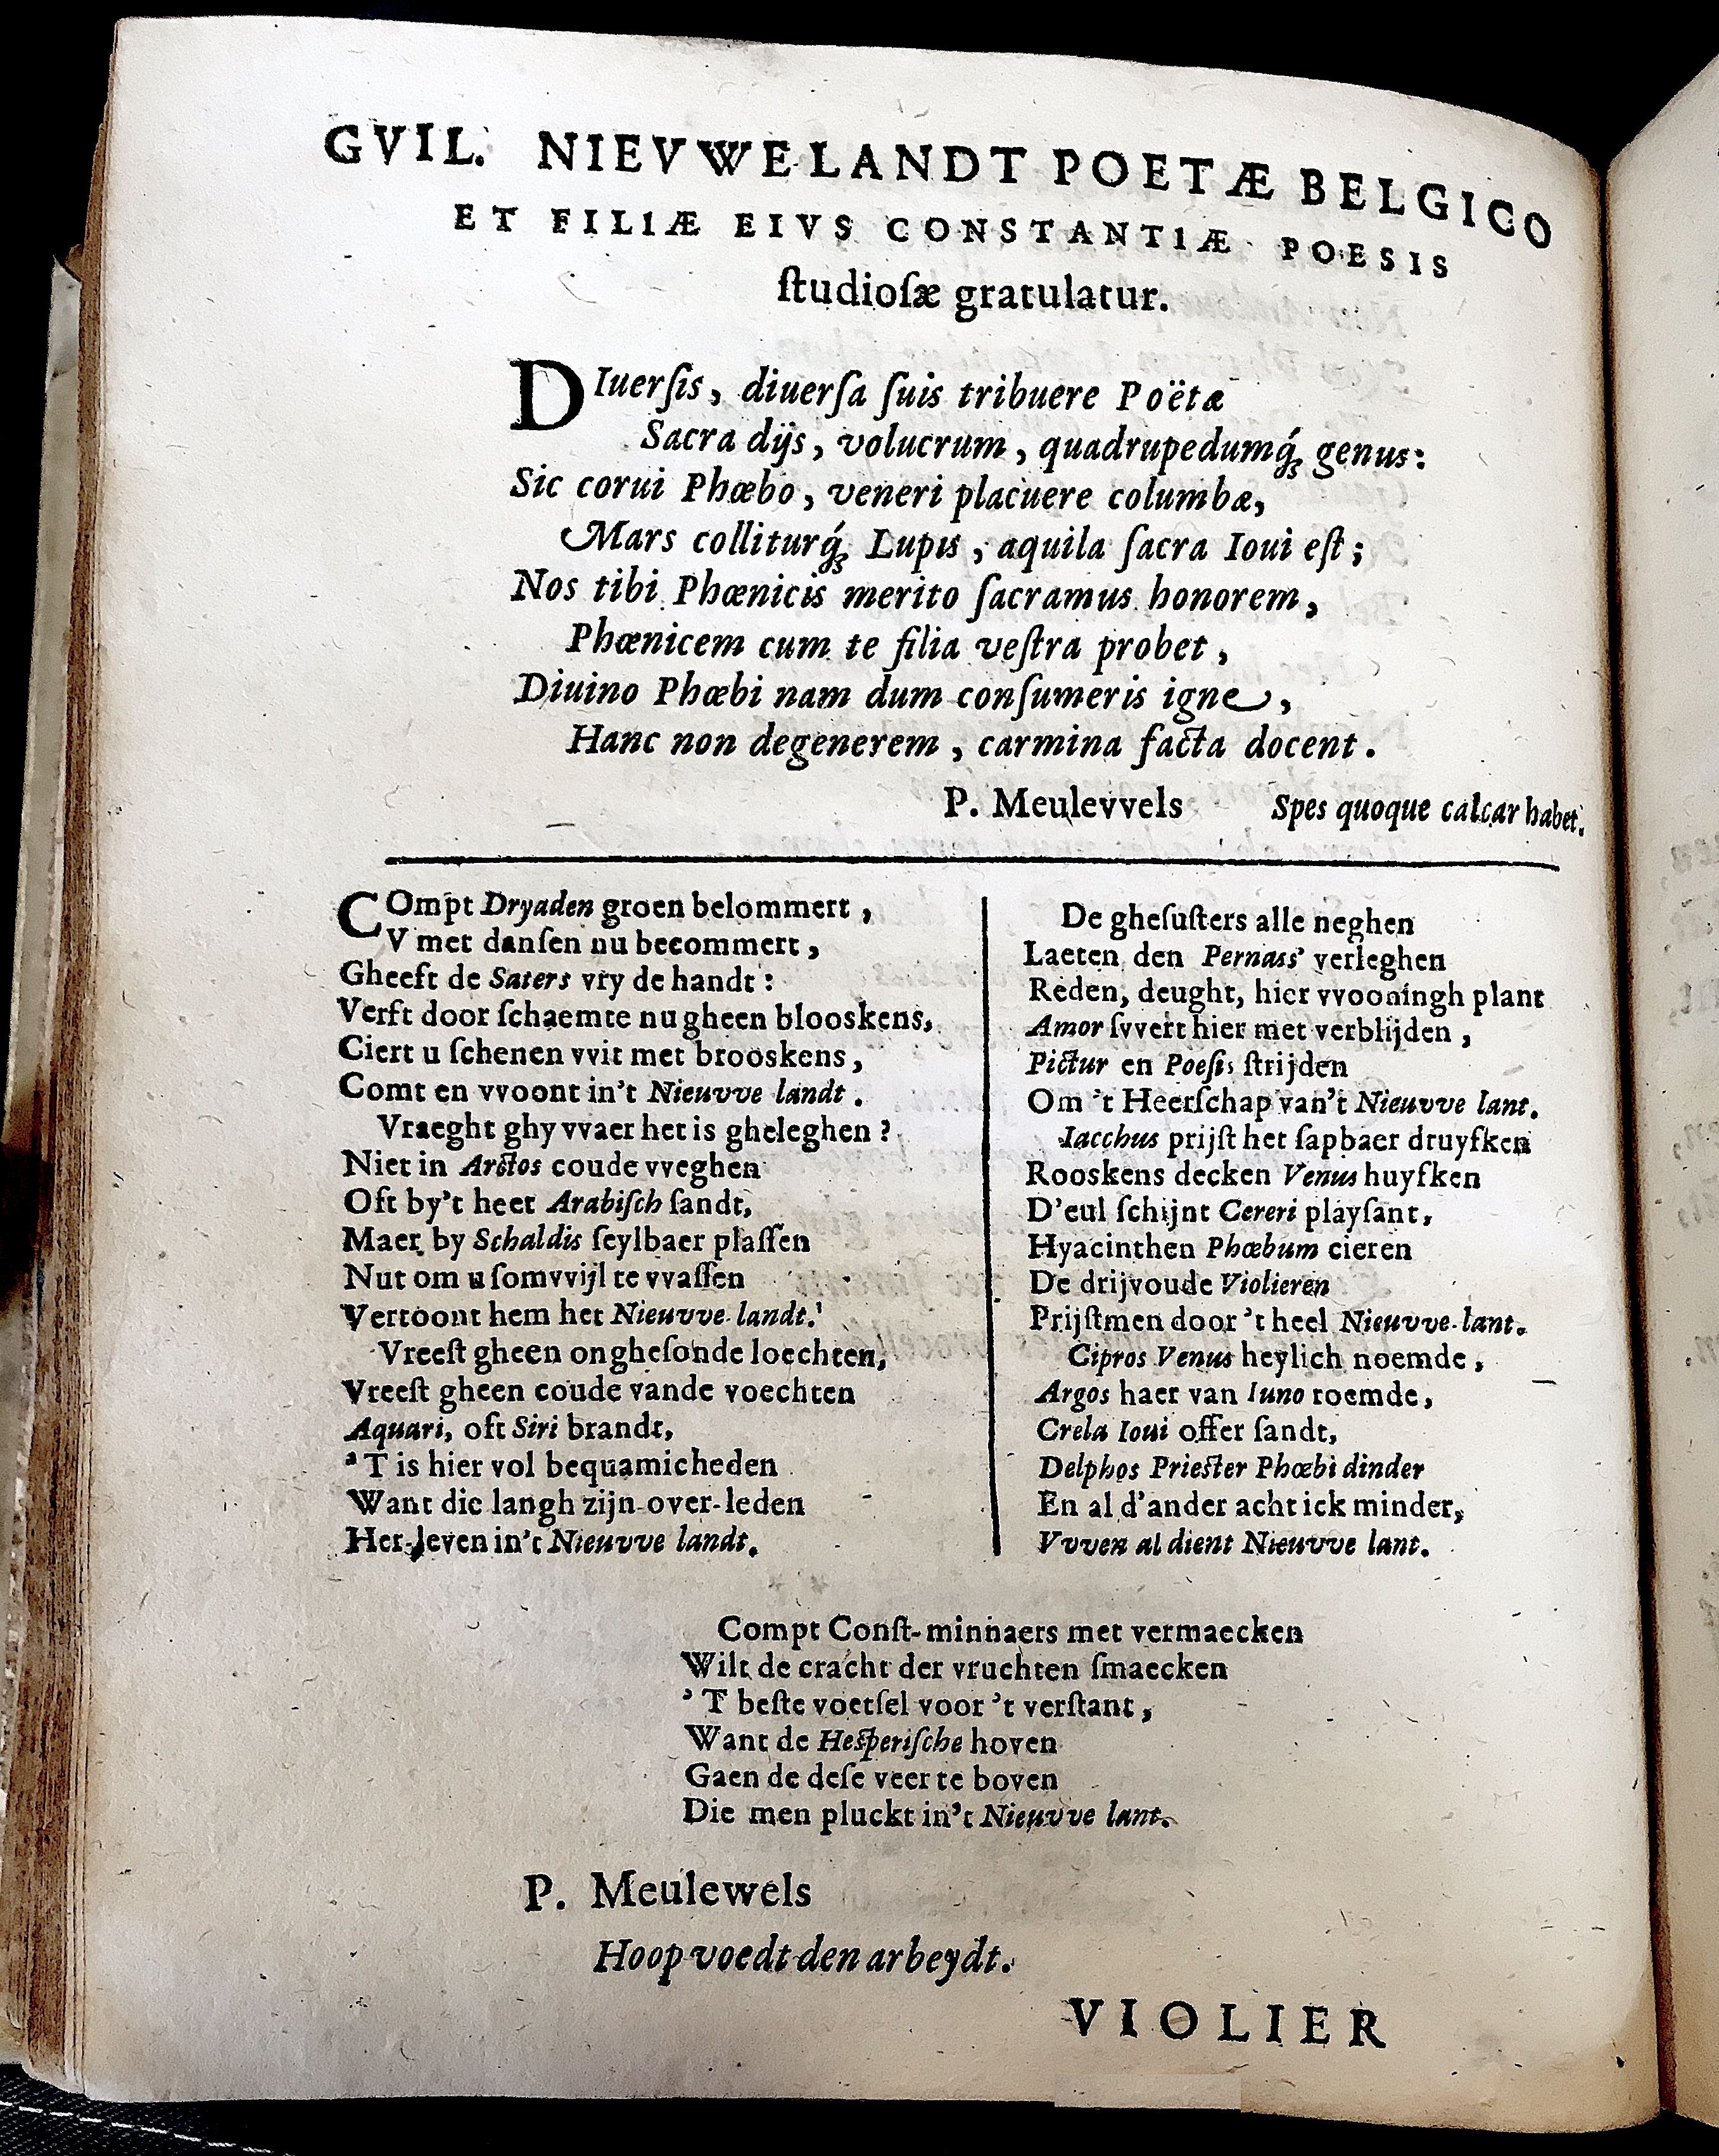 GVIL. NIEVWELANDT POETÆ BELGICO
ET FILIÆ EIVS CONSTANTIÆ POESIS
ſtudioſæ gratulatur.
DIuerſis, diuerſa ſuis tribuere Poëtæ
Sacra dijs, volucrum, quadrupedumq́; genus:
Sic corui Phœbo, veneri placuere columbæ,
Mars colliturq́; Lupis, aquila ſacra Ioui eſt;
Nos tibi Phœnicis merito ſacramus honorem,
Phœnicem cum te filia veſtra probet,
Diuino Phœbi nam dum conſumeris igne,
Hanc non degenerem, carmina facta docent.
P. Meulevvels Spes quoque calcar habet.
COmpt Dryaden groen belommert,
V met danſen nu becommert,
Gheeft de Saters vry de handt:
Verft door ſchaemte nu gheen blooskens,
Ciert u ſchenen vvit met brooskens,
Comt en vvoont in't Nieuvve landt.
Vraeght ghy vvaer het is gheleghen?
Niet in Arctos coude vveghen
Oft by't heet Arabiſch ſandt,
Maer by Schaldis ſeylbaer plaſſen
Nut om u ſomvvijl te vvaſſen
Vertoont hem het Nieuvve landt.
Vreeſt gheen ongheſonde loechten,
Vreeſt gheen coude vande voechten
Aquari, oft Siri brandt,
'T is hier vol bequamicheden
Want die langh zijn over-leden
Her-leven in't Nieuvve landt.
De gheſuſters alle neghen
Laeten den Pernass' verleghen
Reden, deught, hier vvooningh plant
Amor ſvvert hier met verblijden,
Pictur en Poeſis ſtrijden
Om 't Heerſchap van't Nieuvve lant.
Iacchus prijſt het ſapbaer druyfken
Rooskens decken Venus huyfken
D'eul ſchijnt Cereri playſant,
Hyacinthen Phœbum cieren
De drijvoude Violieren
Prijſtmen door 't heel Nieuvve lant.
Cipros Venus heylich noemde,
Argos haer van Iuno roemde,
Crela Ioui offer ſandt,
Delphos Prieſter Phœbi dinder
En al d'ander acht ick minder,
Vvven al dient Nieuvve lant.
Compt Conſt-minnaers met vermaecken
Wilt de cracht der vruchten ſmaecken
'T beſte voetſel voor 't verſtant,
Want de Heſperiſche hoven
Gaen de deſe veer te boven
Die men pluckt in't Nieuvve lant.
P. Meulewels
Hoop voedt den arbeydt.
VIOLIER